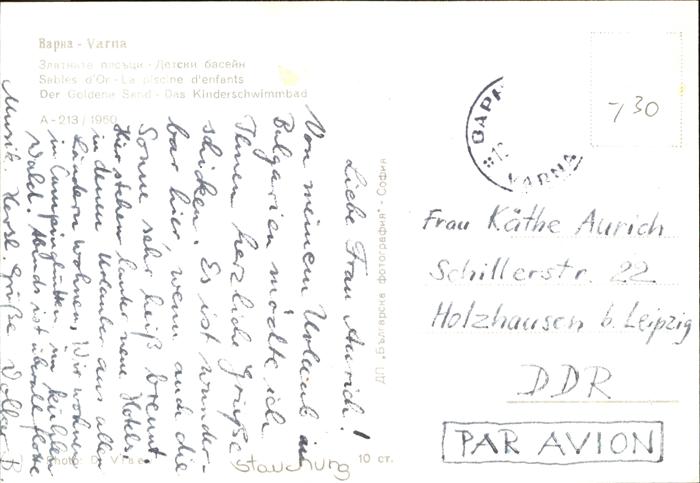 Варна - Varna
Златните пясъци - Детски басейн
Sables d'Or - La piscine d'enfants
Der Goldene Sand - Das Kinderschwimmbad
A - 213 / 1960
Liebe Frau Aurich!
Von meinem Urlaub in
Bulgarien möchte ich
Ihnen herzliche Grüße
schicken. Es ist wunder-
bar hier, wenn auch die
Sonne sehr heiß brennt.
Hier stehen lauter neue Hotels,
in denen Urlauber aus allen
Ländern wohnen. Wir wohnen
in Campinghütten, im kühlen
Wald. Abends ist überall
Musik. Herzl. Grüße
Photo: D.
10 ст.
ДП „Българска фотография" - София
730
ВАРНА
VARNA
Frau Käthe Aurich
Schillerstr. 22
Holzhausen b. Leipzig
DDR
PAR AVION